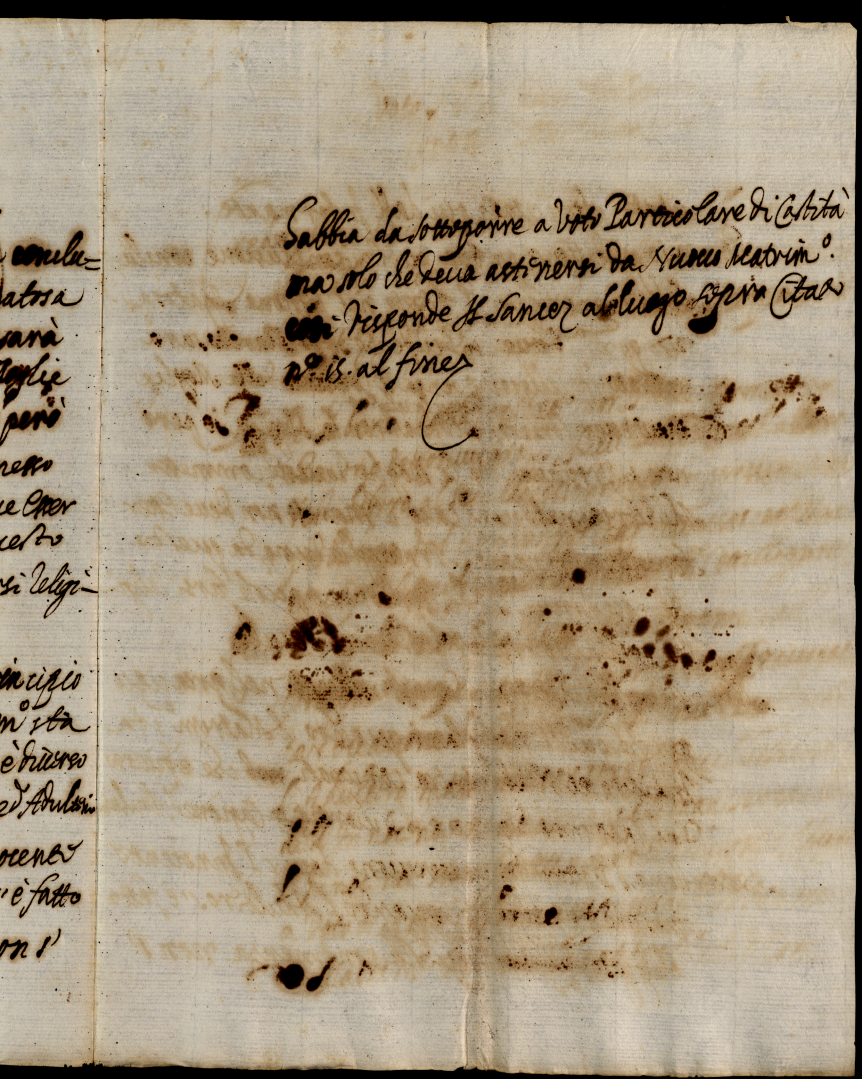 conclu=
atosa
varà
toglie
però
nesso
ue esser
uesto
si religi-
incipio
m.º sta
è diverso
ed Adulterio
nocente
è fatto
on s'
sabbia da sottoporre a Voto Particolare di Castità
ma solo che deva astinersi da Nuovo Matrim.º
così risponde il Sancez al luogo sopra Citato
n.º 15. al fine